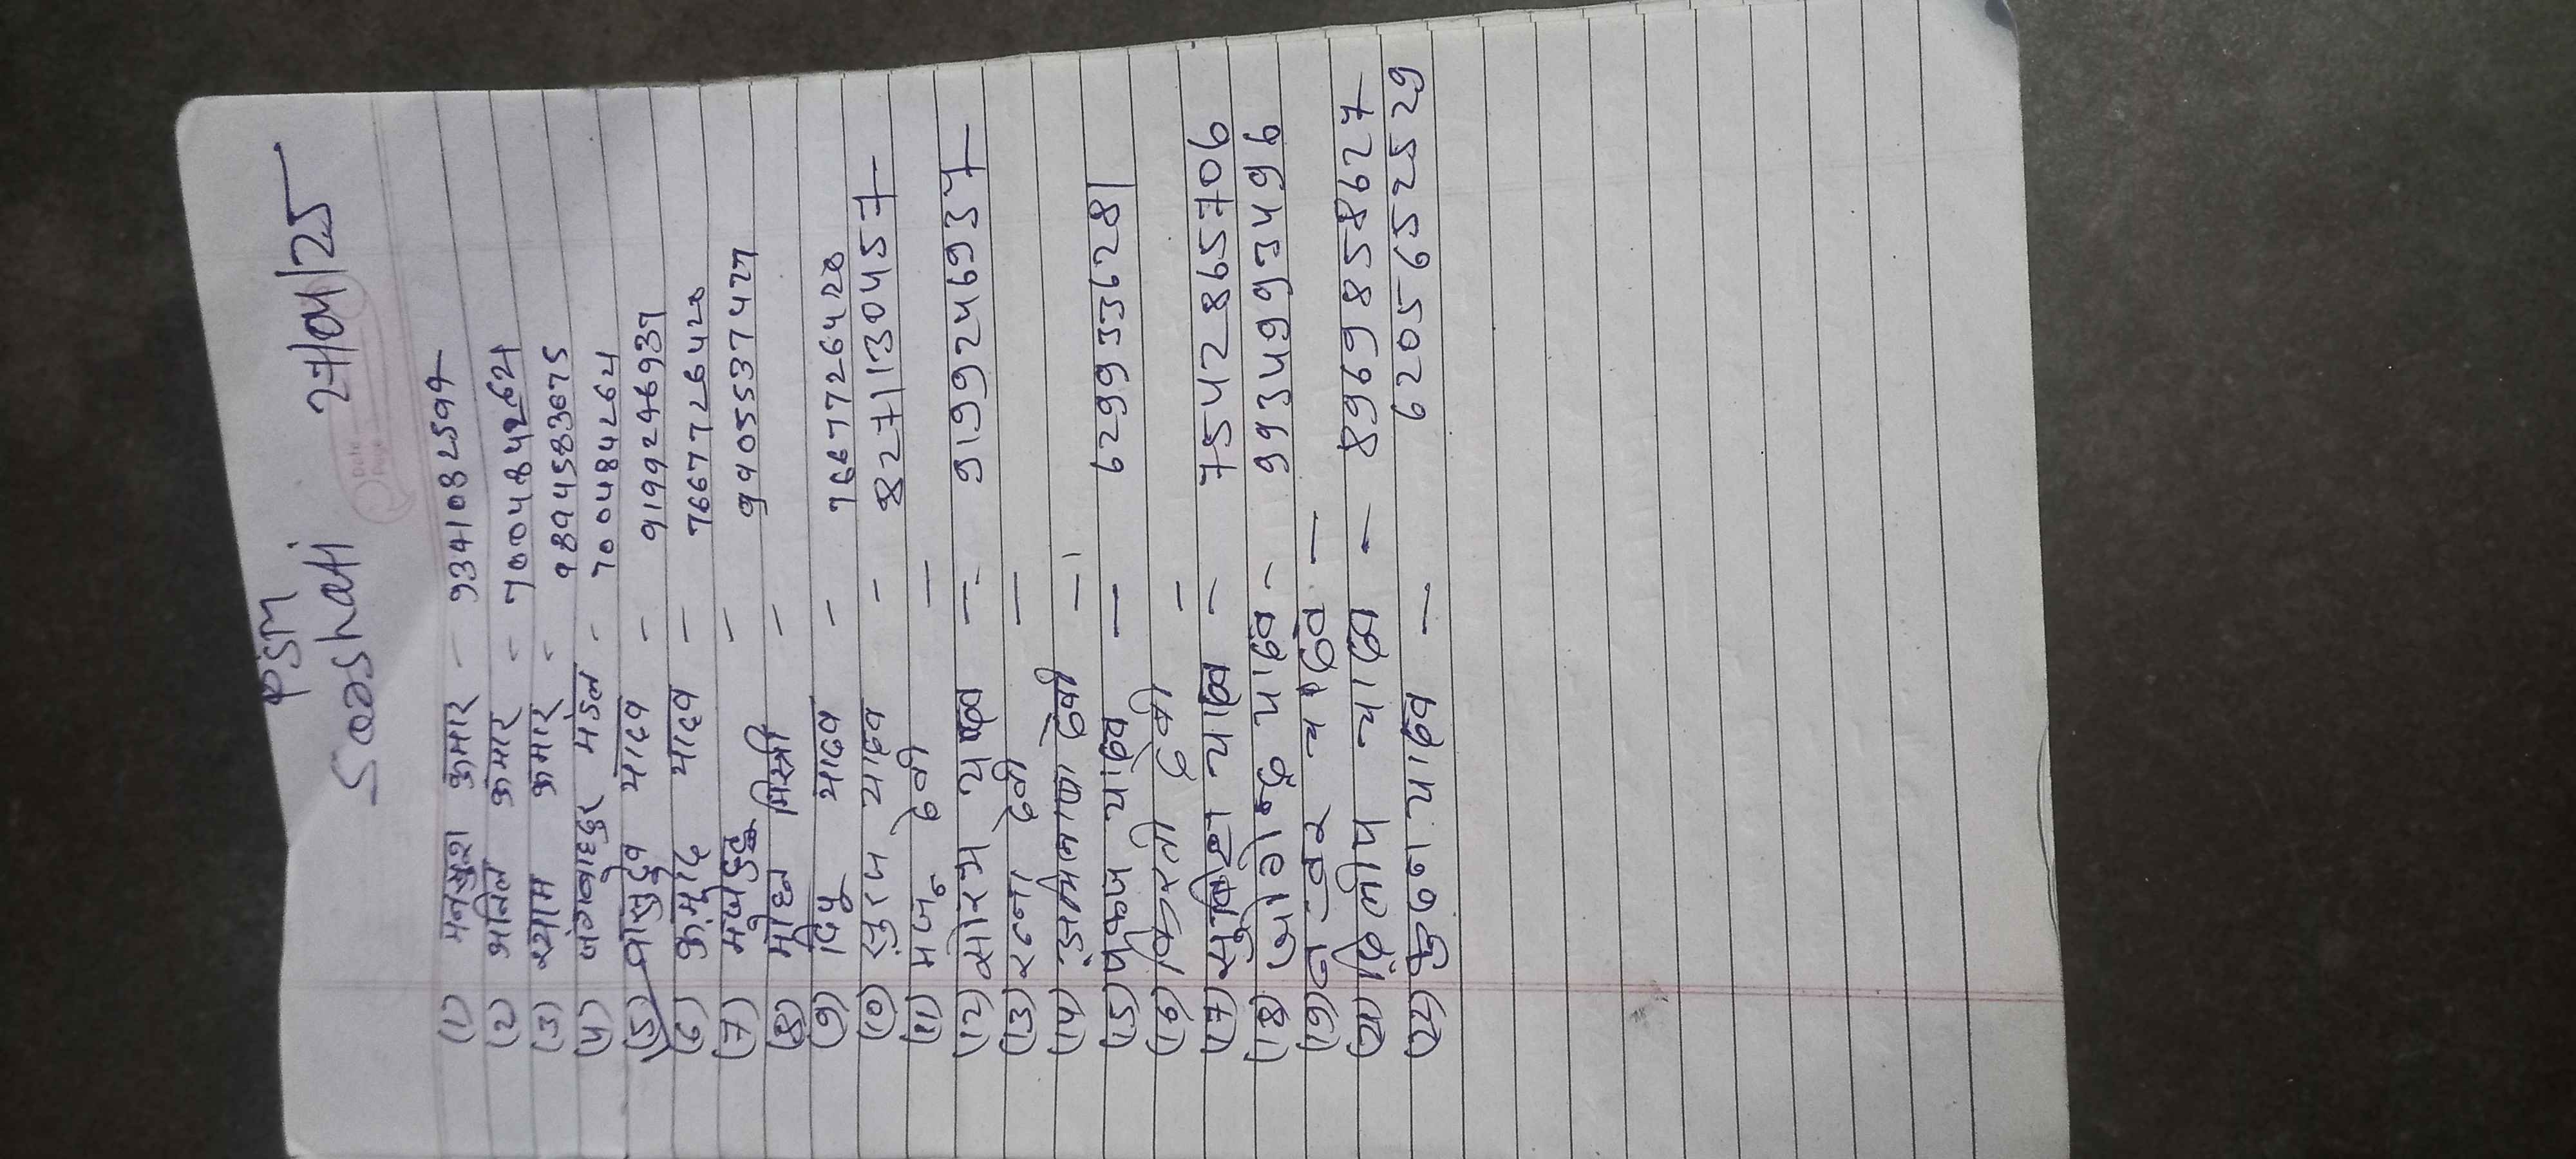 PSM
27/04/25
(1) मनसुश कुमार - 9341082594
(2) अनिल कुमार - 7004842621
(3) श्याम कुमार - 9894583675
(4) जंगबाहदुर मंडल - 700484264
(5) वासुदेव यादव - 9199246937
(6) कुमोद यादव - 7667726420
(7) - 9905537427
(8) मोहन मिस्त्री -
(9) दिपु यादव - 7667726420
(10) सुरज यादव - 8271130457
(11) मंजू देवी -
(12) सोरभ यादव - 9199246937
(13) रत्ना देवी -
(14) देवी -
(15) पंकज यादव - 6299336281
(16) किरती देवी -
(17) यादव - 7542865706
(18) यादव - 9934993496
(19) यादव -
(21) दिलीप यादव - 8969858627
(22) कुंदन यादव - 6205652529